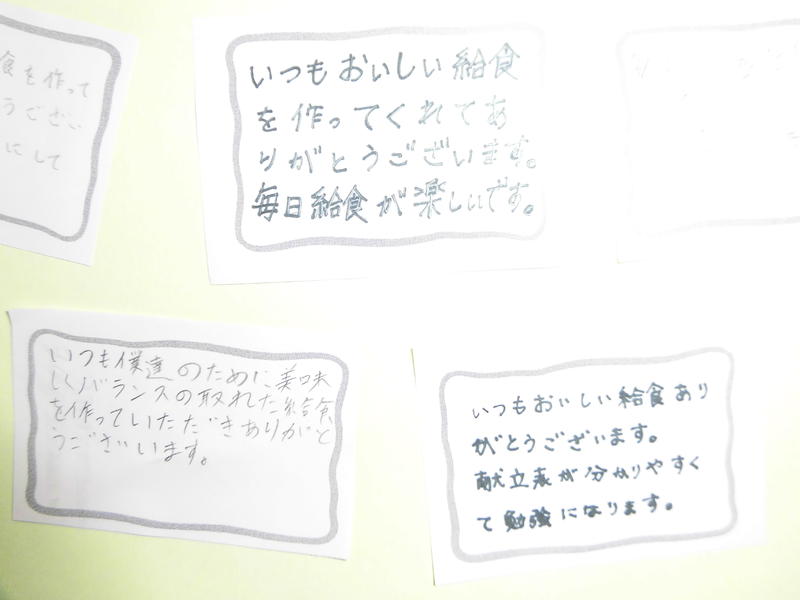 食を作って
うござい
にして
いつもおいしい給食
を作ってくれてあ
りがとうございます。
毎日給食が楽しいです。
いつも僕達のために美味
しくバランスの取れた給食
を作っていただきありがと
うございます。
いつもおいしい給食あり
がとうございます。
献立表が分かりやすく
て勉強になります。